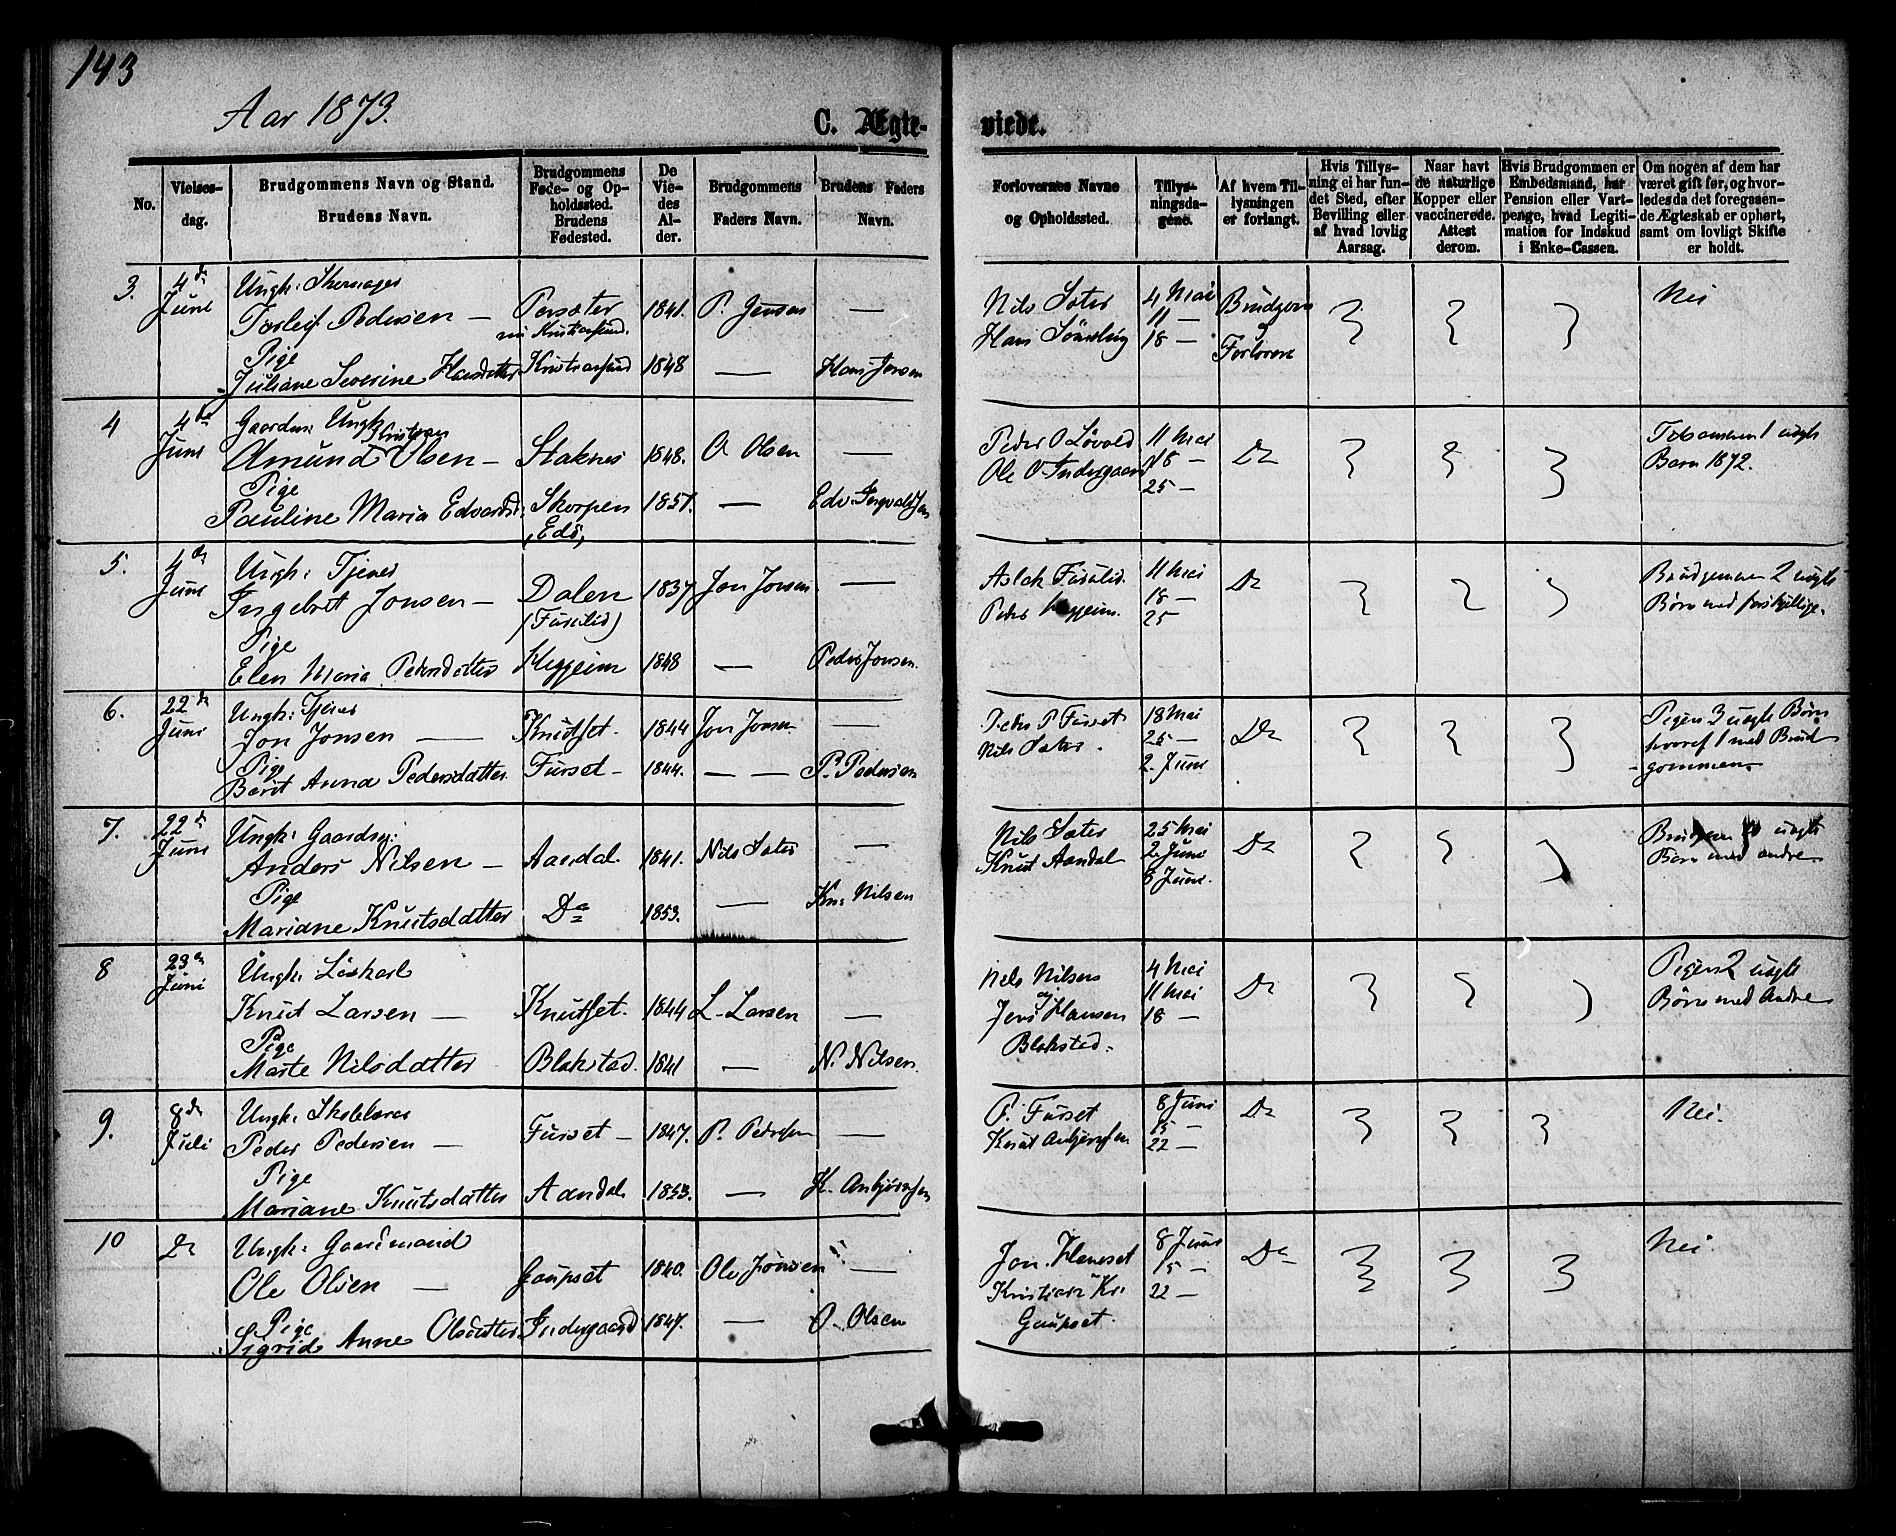 143
Aar 1873.
C. Ægte- viede.
No.
Vielses-
dag.
Brudgommens Navn og Stand.
Brudens Navn.
Brudgommens
Føde- og Op-
holdssted.
Brudens
Fødested.
De
Vie-
des
Al-
der.
Brudgommens
Faders Navn.
Brudens Faders
Navn.
Forlovernes Navne
og Opholdssted.
Tillys-
ningsda-
gene.
Af hvem Til-
lysningen
er forlangt.
Hvis Tillys-
ning ei har fun-
det Sted, efter
Bevilling eller
af hvad lovlig
Aarsag.
Naar havt
de naturlige
Kopper eller
vaccinerede.
Attest
derom.
Hvis Brudgommen er
Embedsmand, har
Pension eller Vart-
penge, hvad Legiti-
mation for Indskud
i Enke-Cassen.
Om nogen af dem har
været gift før, og hvor-
ledes da det foregaaen-
de Ægteskab er ophørt,
samt om lovligt Skifte
er holdt.
3. 4de Juni
Ungk:
Torleif Pedersen — Persæter 1841. P. Jensen —
nu Kristiansund.
Pige
Juliane Severine Hansdatter Kristiansund 1848 — Hans Jensen
Nils Sæter
Hans
4 Mai
11 —
18 —
Brudgom
og
Forlovere
Nei
4 4de Juni
Gaardm: Ungk
Amund Kristian Olsen — Staknes 1848. O Olsen —
Pige
Pauline Maria Edvardsd: Skorpen 1851. — Edv. Ingvaldsen
(Edø)
Peder O Løvold
Ole O Indergaard
11 Mai
18 —
25 —
Do
Tilsammen 1 uægte
Barn 1872.
5. 4de Juni
Ungk: Tjener
Ingebret Jonsen — Dalen 1837 Jon Jonsen —
(Furelid)
Pige
Elen Maria Pedersdatter Heggeim 1848 — Peder Jonsen.
Aslak Furelid.
Peder Heggeim.
11 Mai
18 —
25
Do
Brudgommen 2 uægte
Børn med forskjellige.
6. 22de Juni
Ungk: Tjener
Jon Jonsen — Knutset. 1844 Jon Jonsen —
Pige
Berit Anna Pedersdatter Furset — 1844. — P. Pedersen
Peder P Furset
Nils Sæter.
18 Mai
25 —
2. Juni
Do
Pigen 3 uægte Børn
hvoraf 1 med Brud
-gommen
7. 22de Juni
Ungk: Gaardsg:
Anders Nilsen — Aandal 1841. Nils Sæter —
Pige
Mariane Knutsdatter Do 1853. — Kn: Nilsen
Nils Sæter
Knut Aandal
25 Mai
2. Juni
8 Juni.
Do
uægte
Børn med andre
8 23de Juni
Ungk: Løskarl
Knut Larsen — Knutset. 1844 L. Larsen —
Pige
Marte Nilsdatter Blakstad. 1841 — N. Nilsen
Nils Nilsen
og
Jens Hansen
Blakstad.
4 Mai
11 Mai
18 —
Do
Pigen 2 uægte
Børn med Andre
9. 8de Juli
Ungk: Skolelærer
Peder Pedersen — Furset — 1847. P. Pedersen —
Pige
Mariane Knutsdatter Aandal 1853. — K. Anbjørnsen
P. Furset
Knut Anbjørnsen
8 Juni
15 —
22 —
Do
Nei.
10 Do
Ungk: Gaardmand
Ole Olsen — Gaupset 1840. Ole Jonsen —
Pige
Sigrid Anne Olsdatter Indergaard 1847. — O. Olsen
Jon Heneset
Kristian Kr:
Gaupset.
8 Juni
15 —
22 —
Do
Nei.